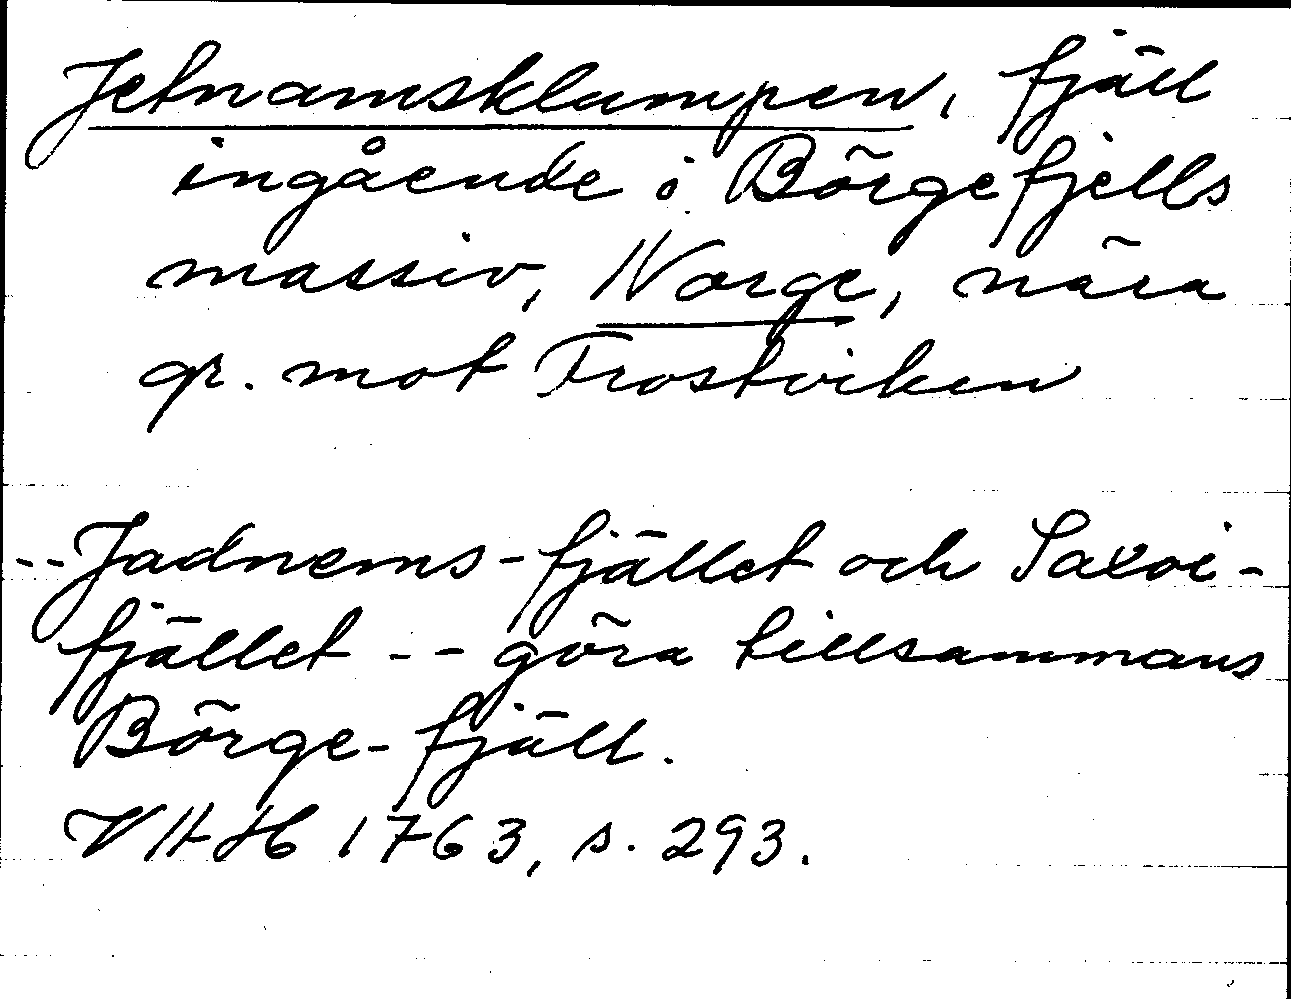 Jetnamsklumpen, fjäll
ingående i Börgefjells
massiv, Norge, nära
gr. mot Frostviken
-- Jadnems-fjället och Saxvi-
fjället -- göra tillsammans
Börge-fjäll.
VHAH 1763, s. 293.